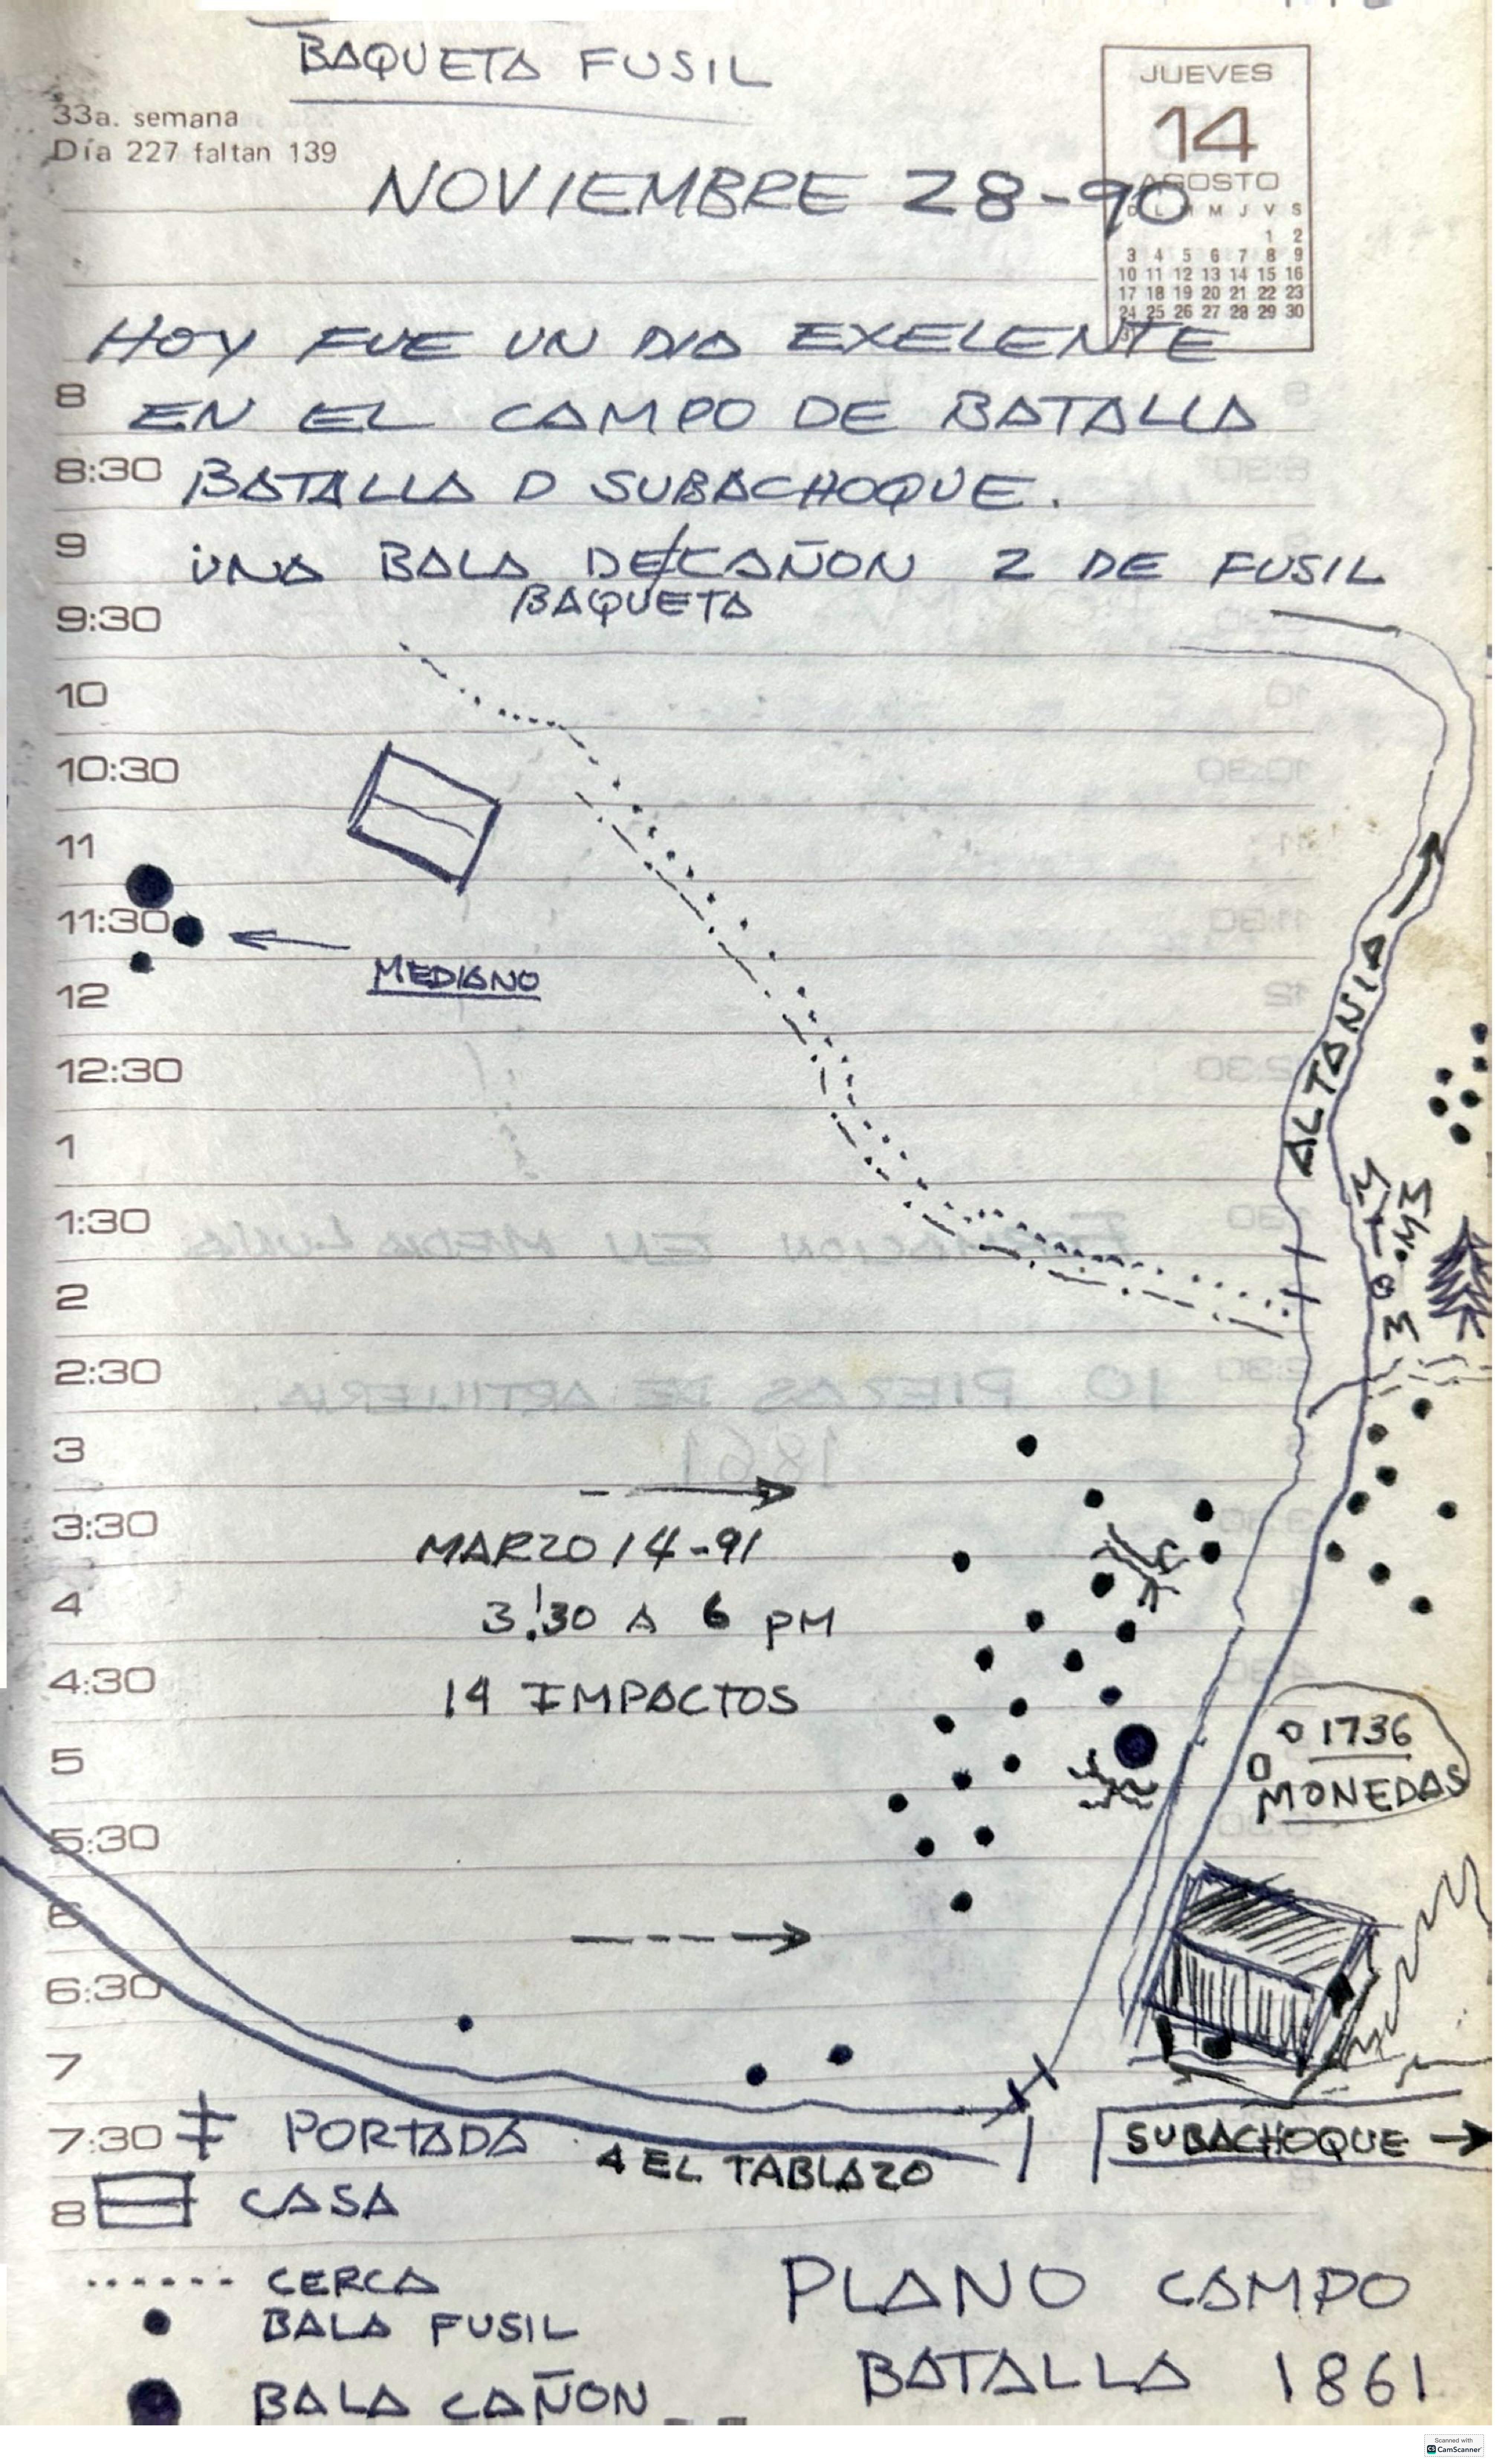 BAQUETA FUSIL
33a. semana
Día 227 faltan 139
JUEVES
14
AGOSTO
D L M M J V S
1 2
3 4 5 6 7 8 9
10 11 12 13 14 15 16
17 18 19 20 21 22 23
24 25 26 27 28 29 30
NOVIEMBRE 28-90
HOY FUE UN DIA EXELENTE
8 EN EL CAMPO DE BATALLA
8:30 BATALLA D SUBACHOQUE.
9 UNA BALA DE CAÑON 2 DE FUSIL
BAQUETA
9:30
10
10:30
11
11:30
MEDIANO
12
12:30
ALTANIA
1
1:30
FORMACION EN MEDIA LUNA
2
2:30
10 PIEZAS DE ARTILLERIA.
1861
3
3:30
MARZO 14-91
4
3:30 A 6 PM
4:30
14 IMPACTOS
5
1736
MONEDAS
5:30
6
6:30
7
7:30 PORTADA
A EL TABLAZO
SUBACHOQUE
8 CASA
CERCA
BALA FUSIL
BALA CAÑON
PLANO CAMPO
BATALLA 1861
Scanned with
CamScanner